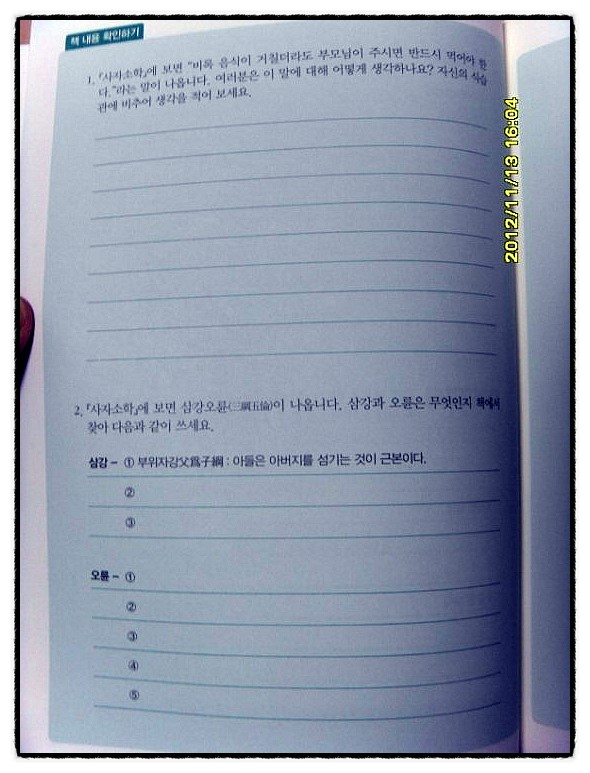 책 내용 확인하기
1. 『사자소학』에 보면 "비록 음식이 거칠더라도 부모님이 주시면 반드시 먹어야 한
다."라는 말이 나옵니다. 여러분은 이 말에 대해 어떻게 생각하나요? 자신의 식습
관에 비추어 생각을 적어 보세요.
2012/11/13 16:04
2. 『사자소학』에 보면 삼강오륜(三綱五倫)이 나옵니다. 삼강과 오륜은 무엇인지 책에서
찾아 다음과 같이 쓰세요.
삼강 - ① 부위자강父爲子綱 : 아들은 아버지를 섬기는 것이 근본이다.
②
③
오륜 - ①
②
③
④
⑤